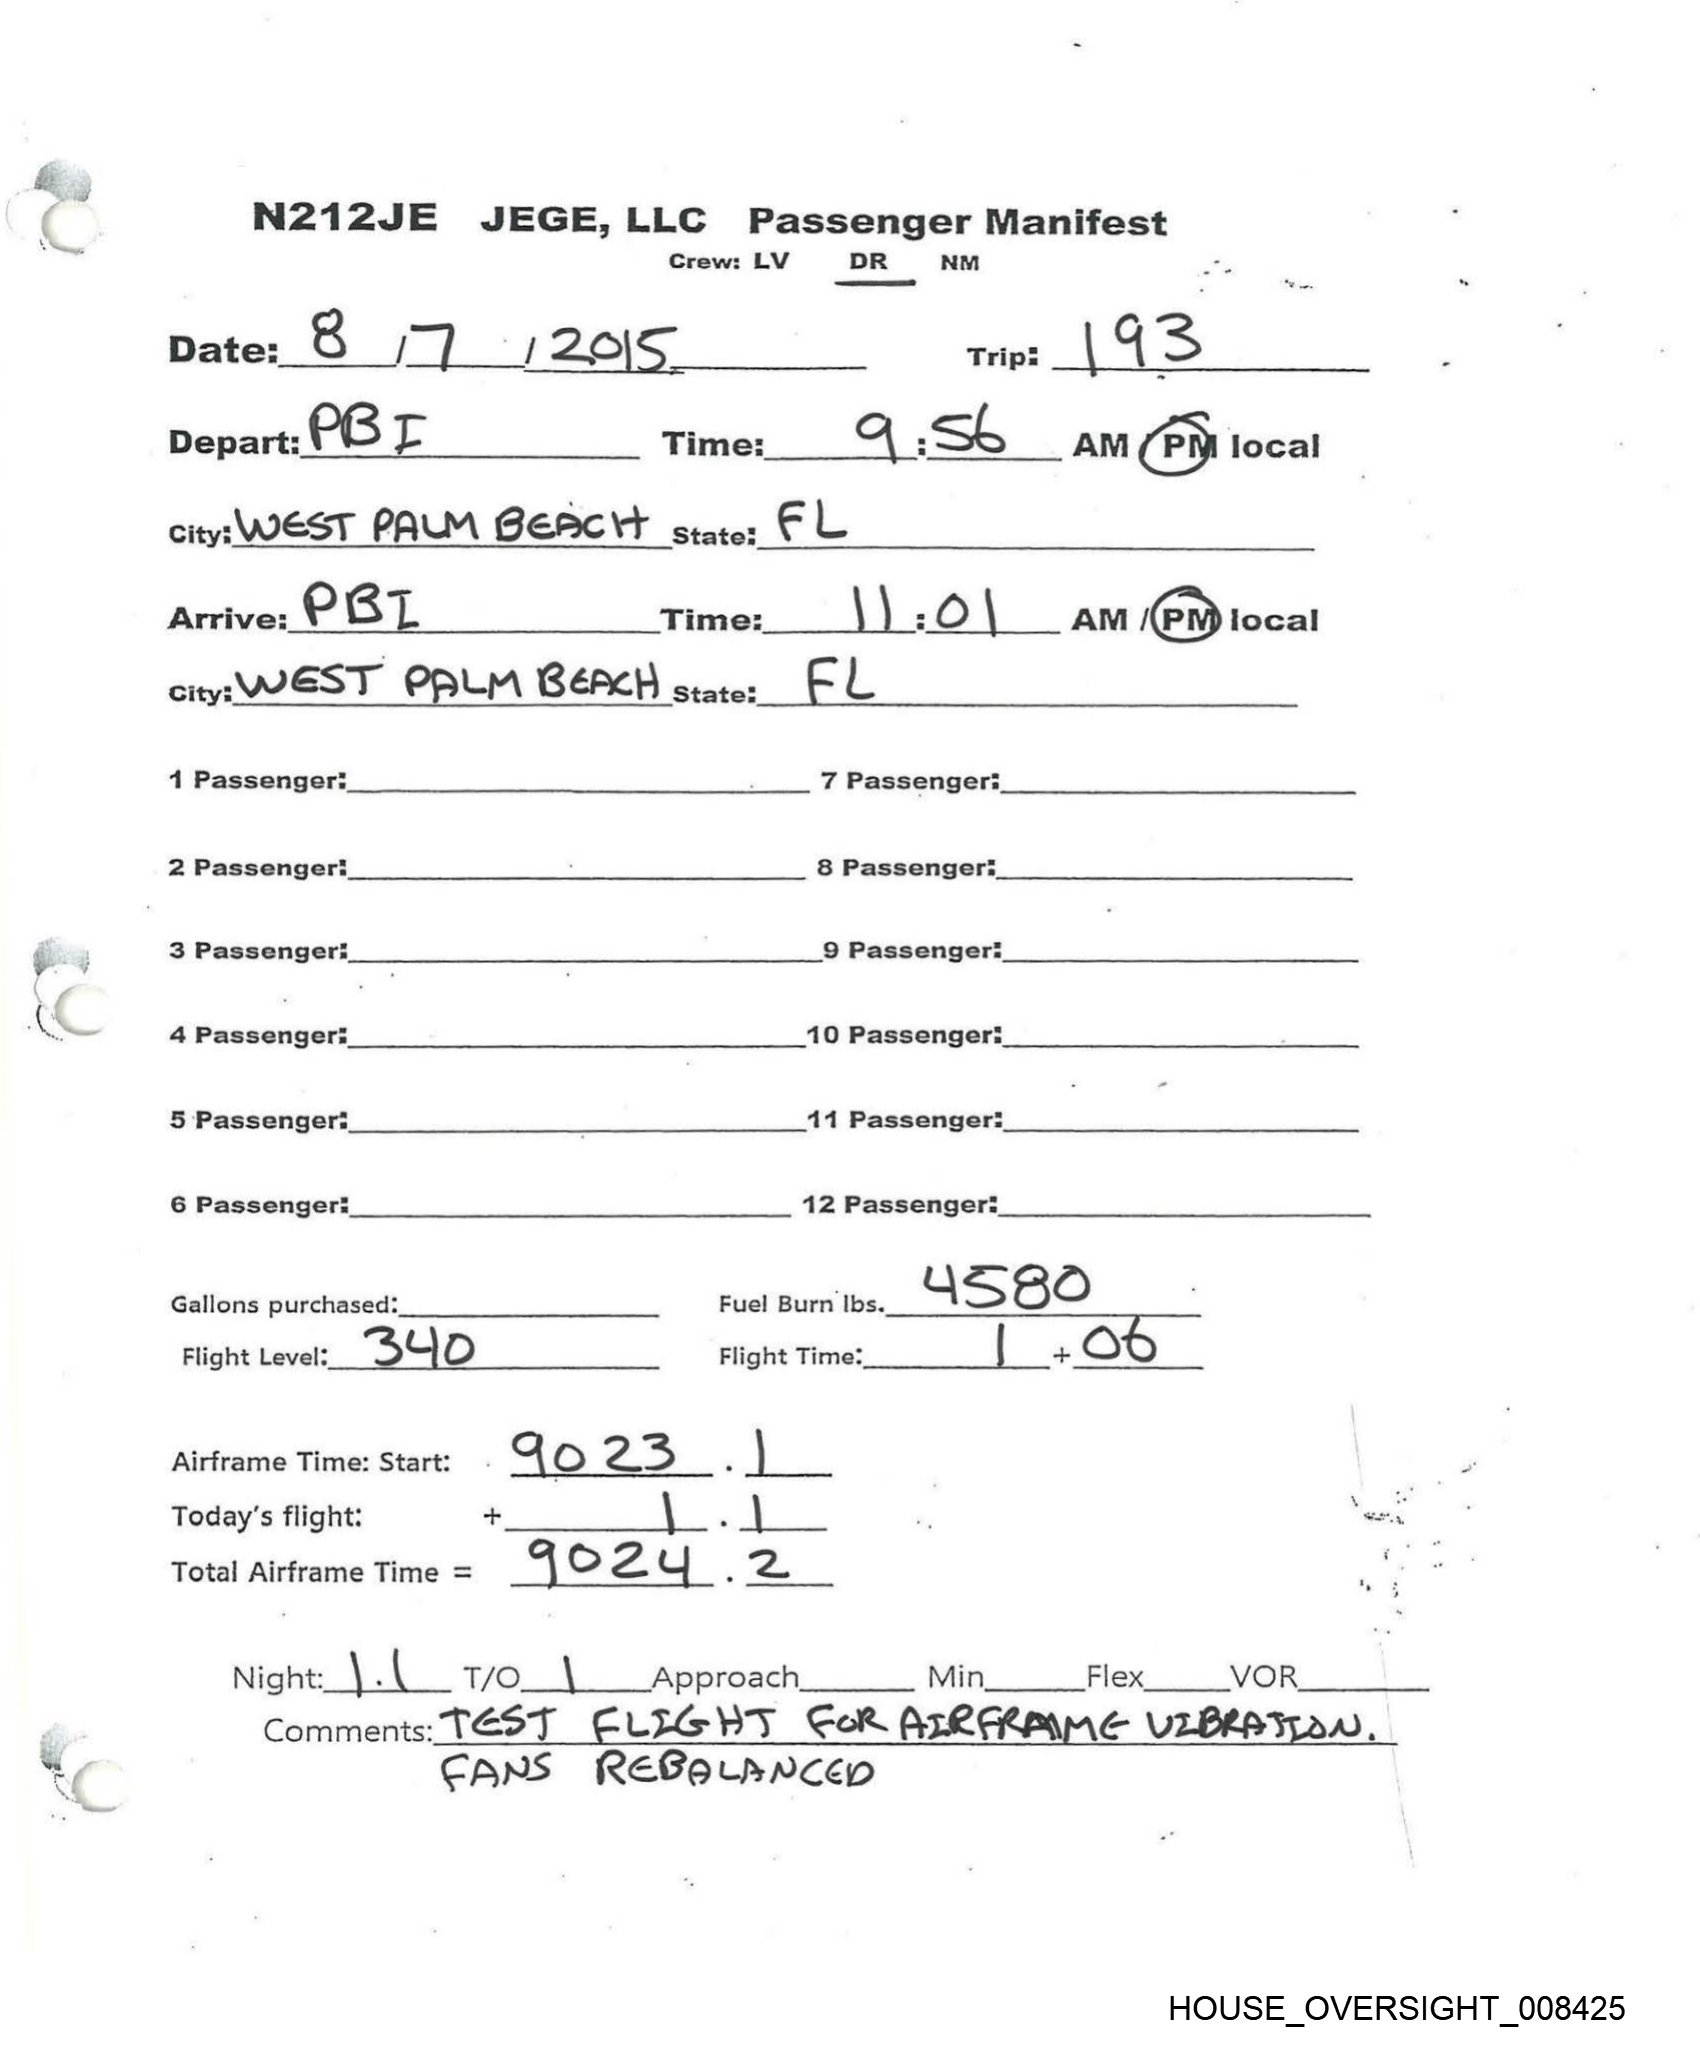 N212JE JEGE, LLC Passenger Manifest
Crew: LV DR NM
Date: 8 / 7 / 2015 Trip: 193
Depart: PBI Time: 9:56 AM / PM local
City: WEST PALM BEACH State: FL
Arrive: PBI Time: 11:01 AM / PM local
City: WEST PALM BEACH State: FL
1 Passenger: 7 Passenger:
2 Passenger: 8 Passenger:
3 Passenger: 9 Passenger:
4 Passenger: 10 Passenger:
5 Passenger: 11 Passenger:
6 Passenger: 12 Passenger:
Gallons purchased: Fuel Burn lbs. 4580
Flight Level: 340 Flight Time: 1 + 06
Airframe Time: Start: 9023 . 1
Today's flight: + 1 . 1
Total Airframe Time = 9024 . 2
Night: 1.1 T/O 1 Approach Min Flex VOR
Comments: TEST FLIGHT FOR AIRFRAME VIBRATION.
FANS REBALANCED
HOUSE_OVERSIGHT_008425